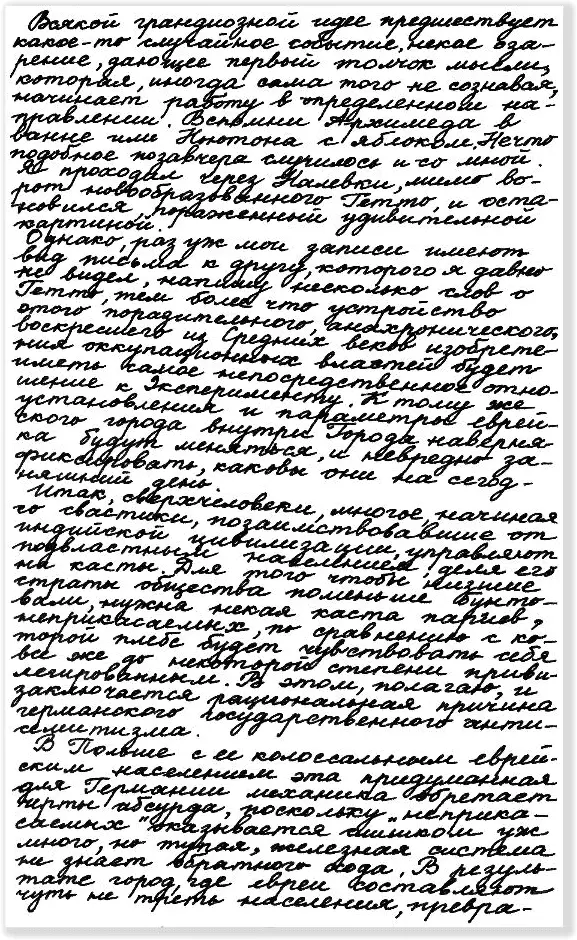 Всякой грандиозной идее предшествует
какое-то случайное событие, некое оза-
рение, дающее первый толчок мысли,
которая, иногда сама того не сознавая,
начинает работу в определенном на-
правлении. Вспомни Архимеда в
ванне или Ньютона с яблоком. Нечто
подобное позавчера случилось и со мной.
Я проходил через Налевки, мимо во-
рот новообразованного Гетто, и оста-
новился, пораженный удивительной
картиной.
Однако, раз уж мои записи имеют
вид письма к другу, которого я давно
не видел, напишу несколько слов о
Гетто, тем более что устройство
этого поразительного, анахронического,
воскресшего из Средних веков изобрете-
ния оккупационных властей будет
иметь самое непосредственное отно-
шение к Эксперименту. К тому же
установления и параметры еврей-
ского города внутри Города наверня-
ка будут меняться, и невредно за-
фиксировать, каковы они на сегод-
няшний день.
Итак, сверхчеловеки, многое, начиная
со свастики, позаимствовавшие от
индийской цивилизации, управляют
подвластным населением, деля его
на касты. Для того чтобы низшие
страты общества поменьше бунто-
вали, нужна некая каста париев,
неприкасаемых, по сравнению с ко-
торой плебс будет чувствовать себя
все же до некоторой степени приви-
легированным. В этом, полагаю, и
заключается рациональная причина
германского государственного анти-
семитизма.
В Польше с ее колоссальным еврей-
ским населением эта придуманная
для Германии механика обретает
черты абсурда, поскольку „неприка-
саемых" оказывается слишком уж
много, но тупая, железная система
не знает обратного хода. В резуль-
тате город, где евреи составляют
чуть не треть населения, превра-